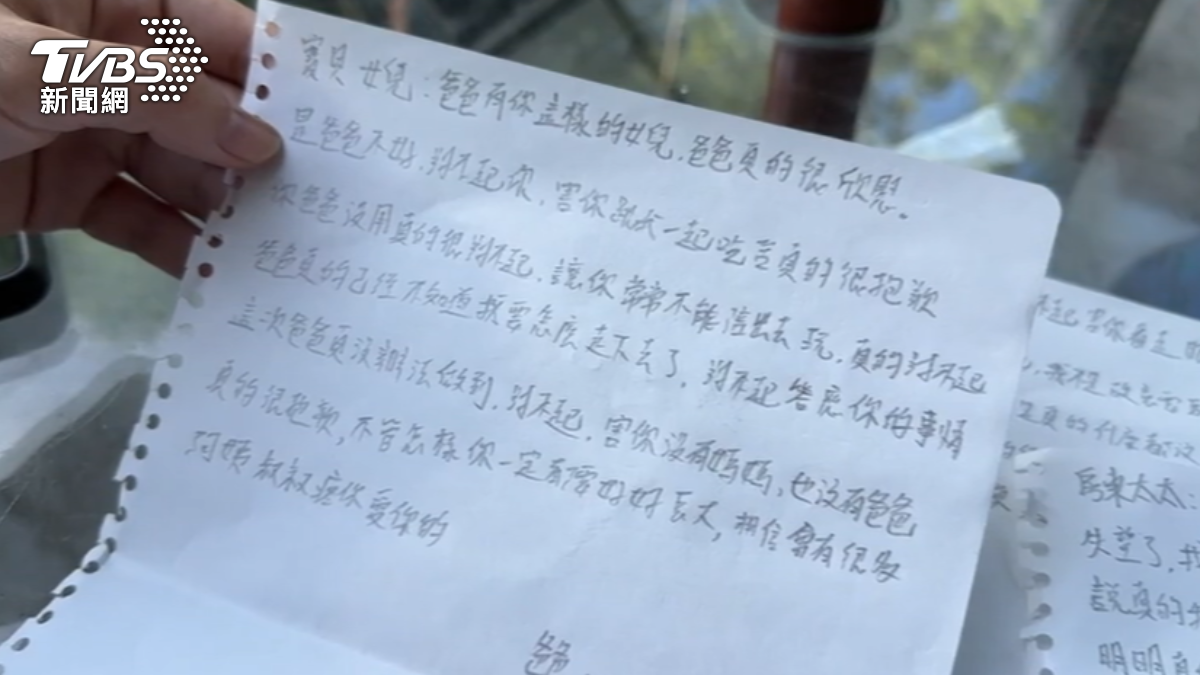 TVBS
新聞網
寶貝女兒：爸爸有你這樣的女兒，爸爸真的很欣慰。
是爸爸不好，對不起你，害你跟我一起吃苦真的很抱歉
你爸爸沒用真的很對不起，讓你常常不能這出去玩，真的對不起
爸爸真的已經不知道我要怎麼走下去了，對不起答應你的事情
這次爸爸真沒辦法做到，對不起，害你沒有媽媽，也沒有爸爸
真的很抱歉，不管怎樣你一定要好好長大，相信會有很多
阿姨叔叔疼你愛你的
爸爸
起害你看走
我不是故意
真的什麼都沒
房東太太：
失望了，我
說真的
明明真